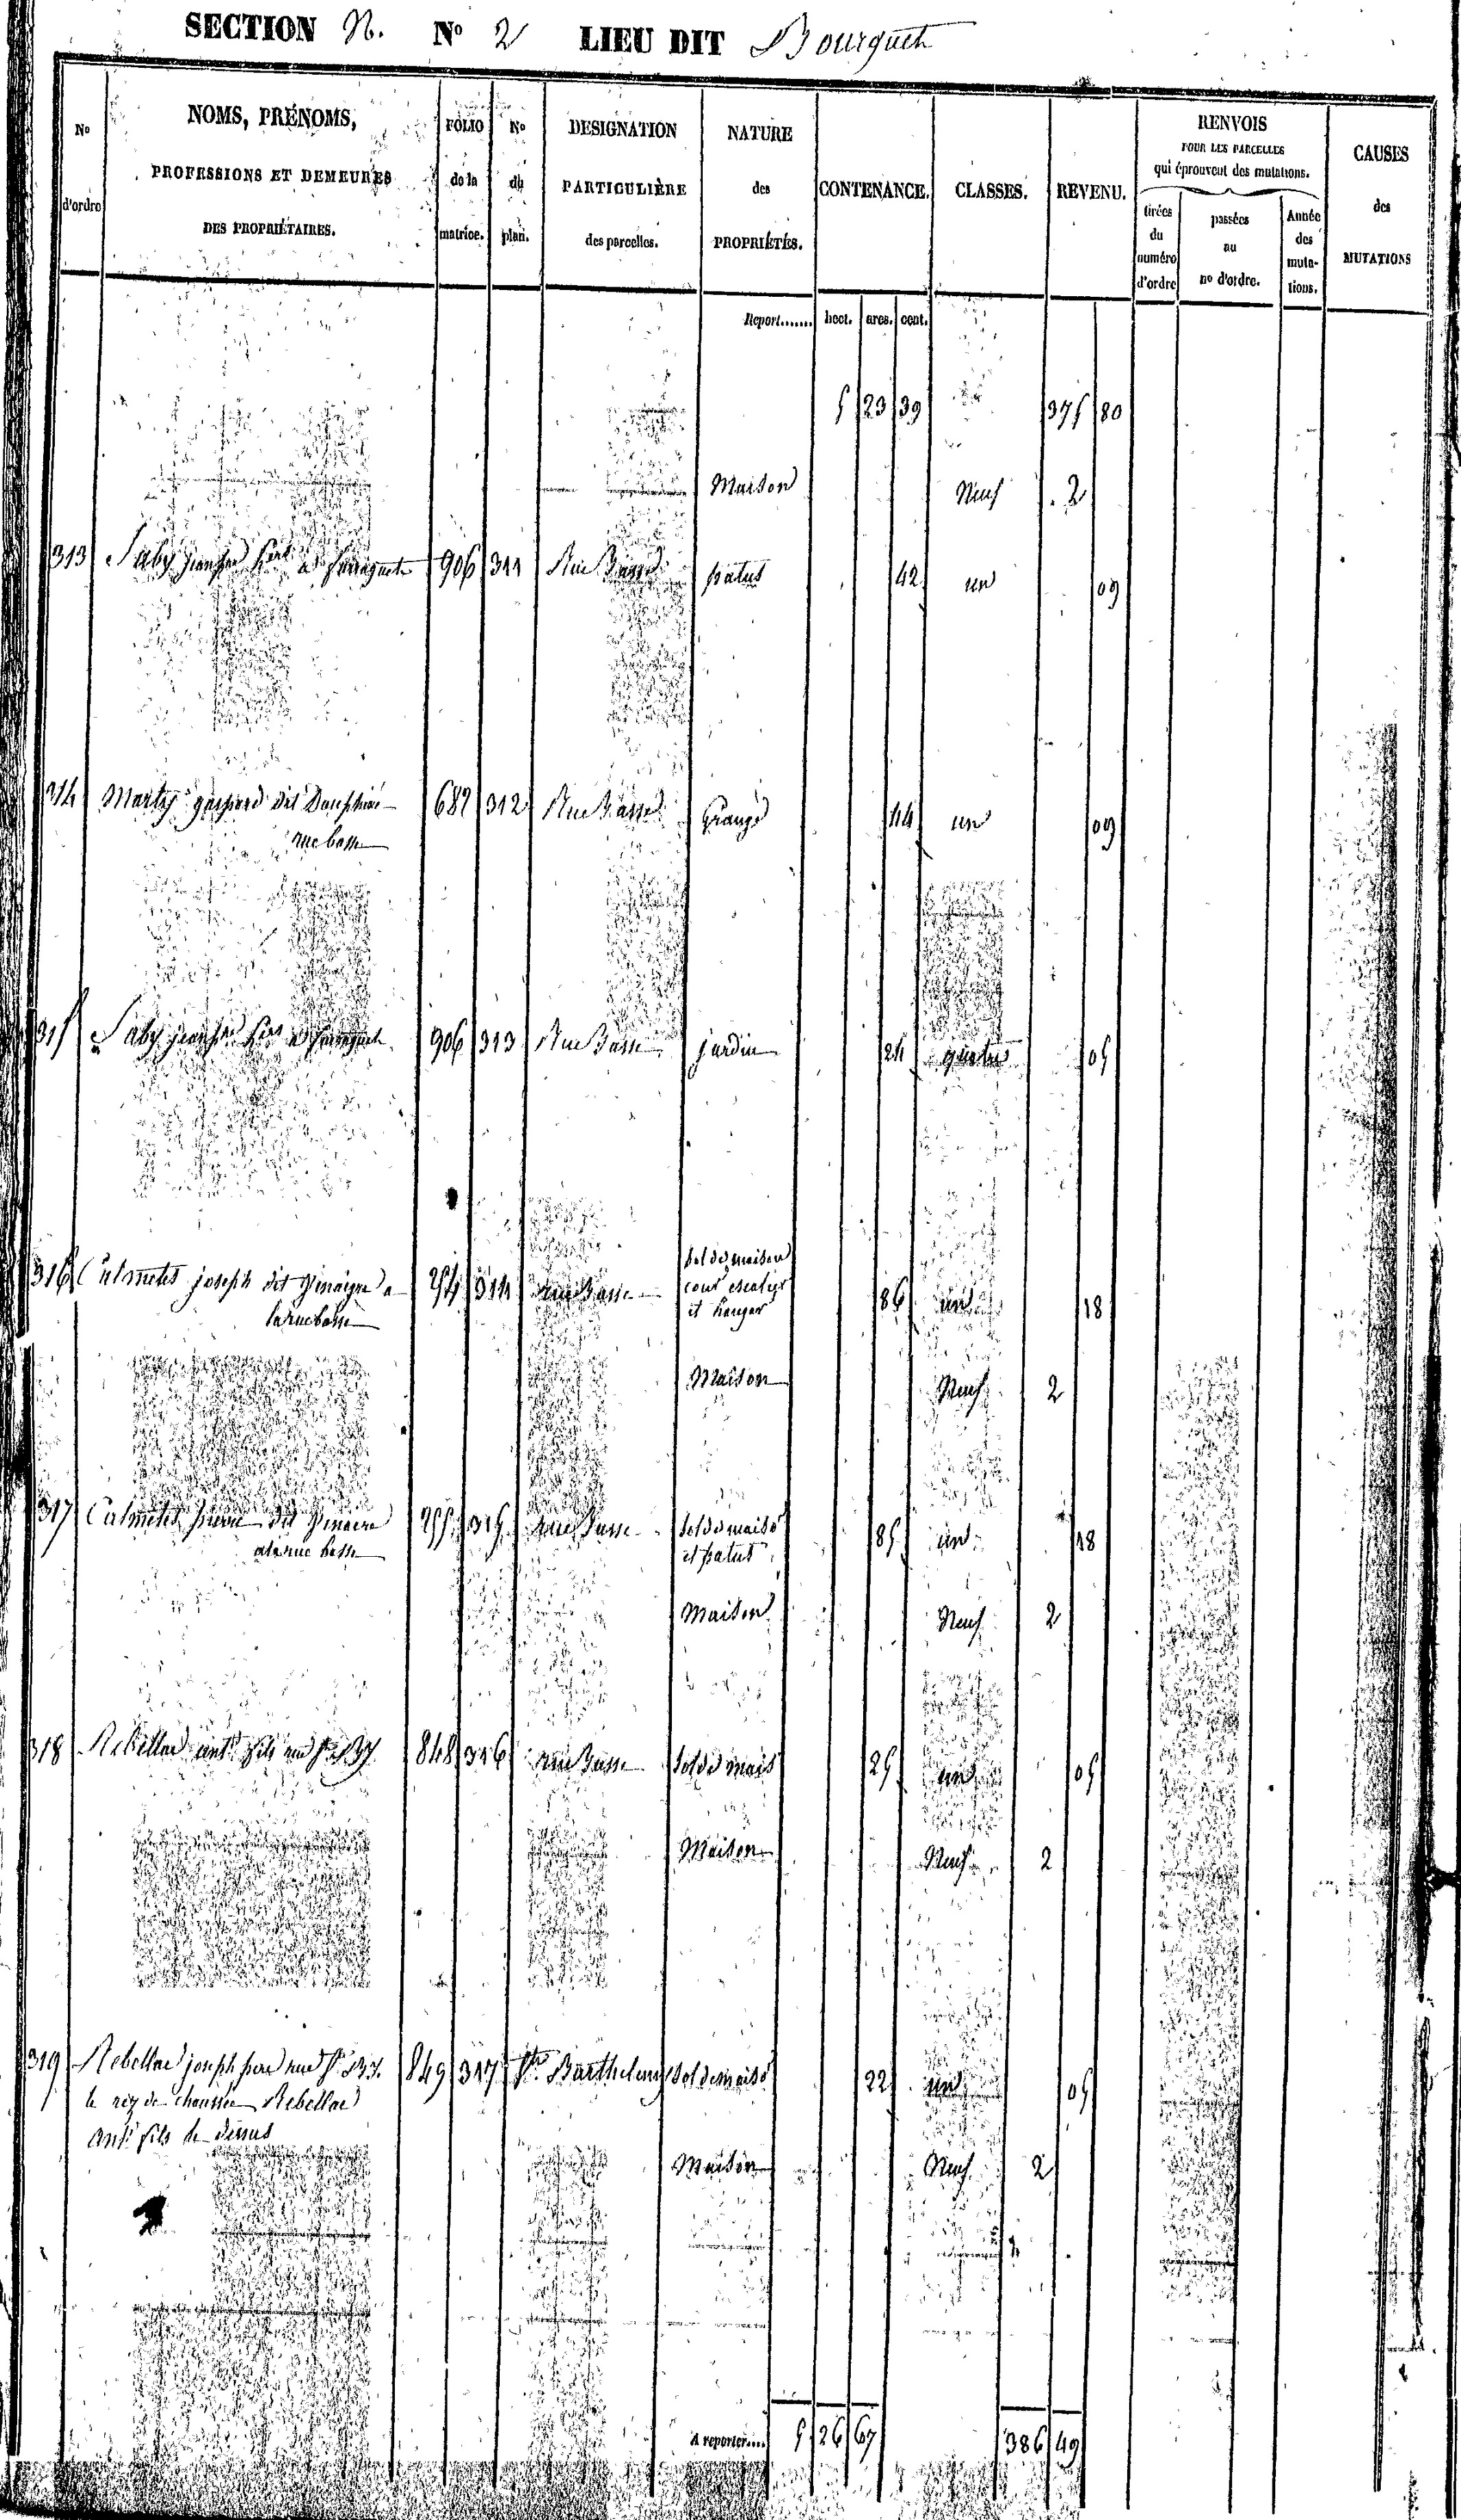 SECTION N. No 2 LIEU DIT Bourguet
No d'ordre
NOMS, PRÉNOMS, PROFESSIONS ET DEMEURES DES PROPRIÉTAIRES.
FOLIO de la matrice.
No du plan.
DESIGNATION PARTICULIÈRE des parcelles.
NATURE des PROPRIÉTÉS.
CONTENANCE.
CLASSES.
REVENU.
RENVOIS POUR LES PARCELLES qui éprouvent des mutations.
tirées du numéro d'ordre
passées au no d'ordre.
Année des mutations.
CAUSES des MUTATIONS
Report....... hect. ares. cent.
5 23 39 375 80
Maison Neuf 2
313 Saby 906 311 Rue Basse patus 42 un 09
314 Marty gaspard dit Dauphiné 682 312 Rue Basse Grange 44 un 09
rue basse
315 Saby 906 313 Rue Basse jardin 24 quatre 05
316 Calmetes joseph dit a 254 314 rue Basse sol de maison
cour escalier
et hangar 86 un 18
la rue basse
Maison Neuf 2
317 Calmetes pierre dit 255 315 rue Basse sol de maiso 85 un 18
a la rue basse et patus
Maison Neuf 2
318 Rebellac ant. fils rue 848 316 rue Basse sol de mais 25 un 05
Maison Neuf 2
319 Rebellac joseph pere rue 849 317 St Barthelemy sol de maiso 22 un 05
le rez de chaussée Rebellac
ant. fils le dessus
Maison Neuf 2
A reporter.... 5 26 67 386 49